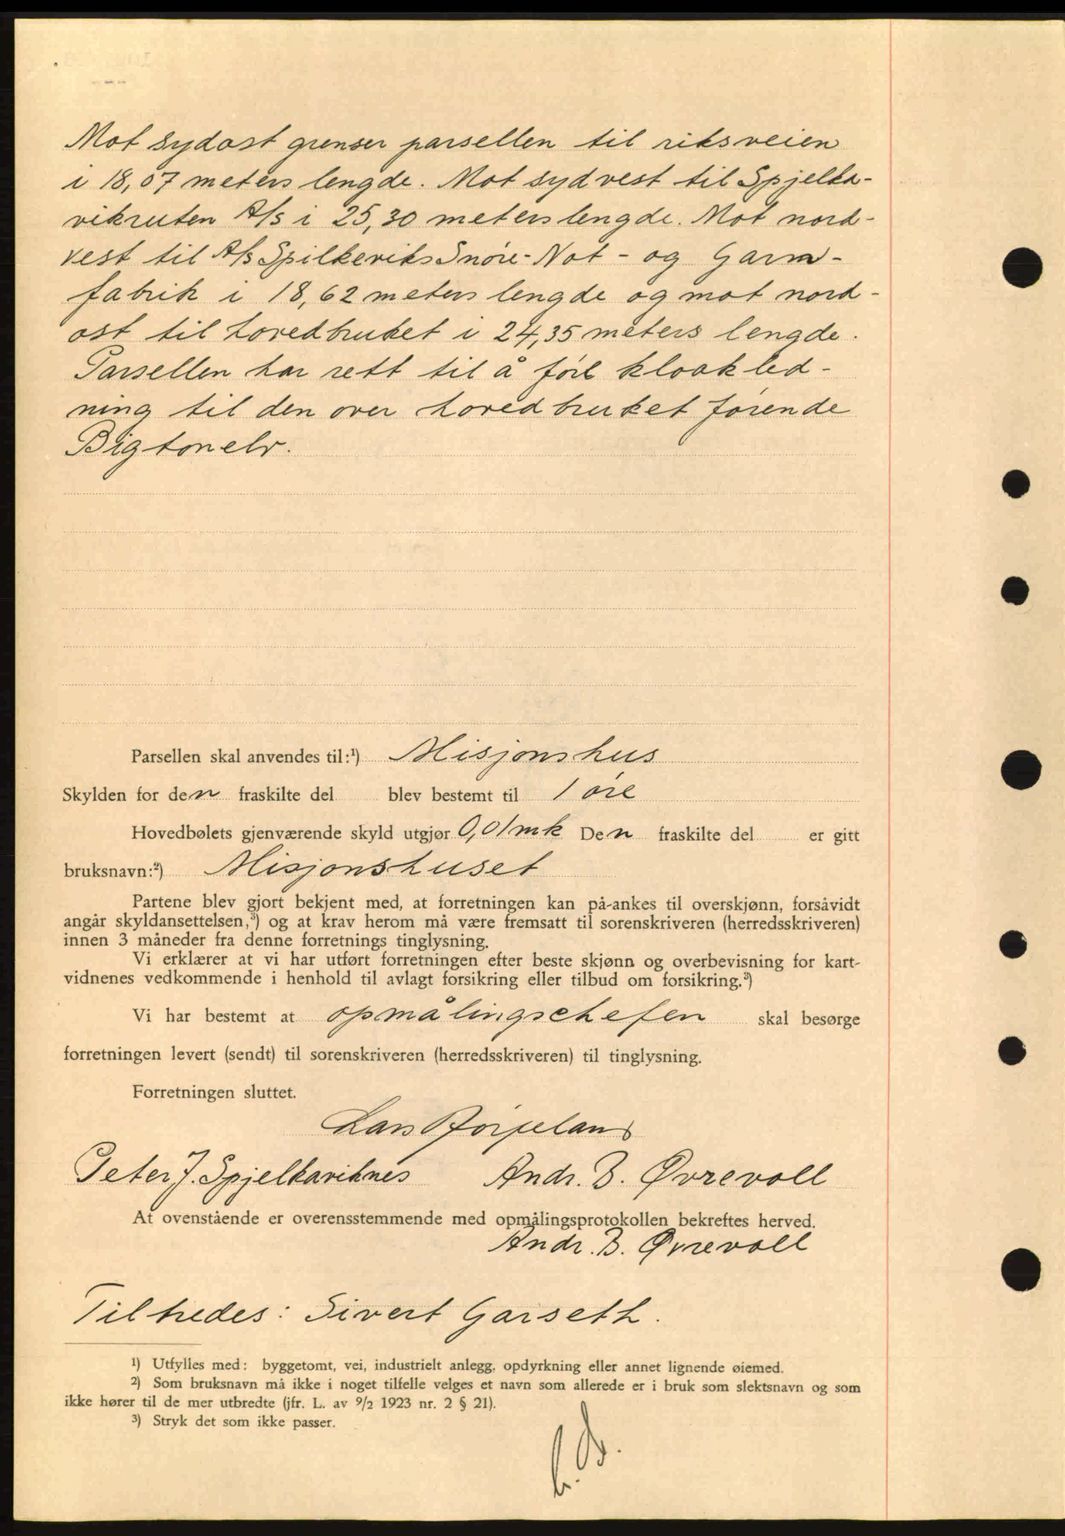 Mot sydost grenser parsellen til riksveien
i 18,07 meters lengde. Mot sydvest til Spjelka-
vikruten A/s i 25,30 meters lengde. Mot nord-
vest til A/s Spilkeviks Snøre- Not - og Garn-
fabrik i 18,62 meters lengde og mot nord-
ost til hovedbruket i 24,35 meters lengde.
Parsellen har rett til å føre kloakled-
ning til den over hovedbruket førende
elv.
Parsellen skal anvendes til:¹) Misjonshus
Skylden for den fraskilte del blev bestemt til 1 øre
Hovedbølets gjenværende skyld utgjør 0,01 mk Den fraskilte del er gitt
bruksnavn:²) Misjonshuset
Partene blev gjort bekjent med, at forretningen kan på-ankes til overskjønn, forsåvidt
angår skyldansettelsen,³) og at krav herom må være fremsatt til sorenskriveren (herredsskriveren)
innen 3 måneder fra denne forretnings tinglysning.
Vi erklærer at vi har utført forretningen efter beste skjønn og overbevisning for kart-
vidnenes vedkommende i henhold til avlagt forsikring eller tilbud om forsikring.³)
Vi har bestemt at opmålingschefen skal besørge
forretningen levert (sendt) til sorenskriveren (herredsskriveren) til tinglysning.
Forretningen sluttet.
Lars Jørpeland
Peter J. Spjelkaviknes Andr. B. Øvrevoll
At ovenstående er overensstemmende med opmålingsprotokollen bekreftes herved.
Andr. B. Øvrevoll
Tilstedes: Sivert Garseth.
¹) Utfylles med: byggetomt, vei, industrielt anlegg, opdyrkning eller annet lignende øiemed.
²) Som bruksnavn må ikke i noget tilfelle velges et navn som allerede er i bruk som slektsnavn og som
ikke hører til de mer utbredte (jfr. L. av ⁹/₂ 1923 nr. 2 § 21).
³) Stryk det som ikke passer.